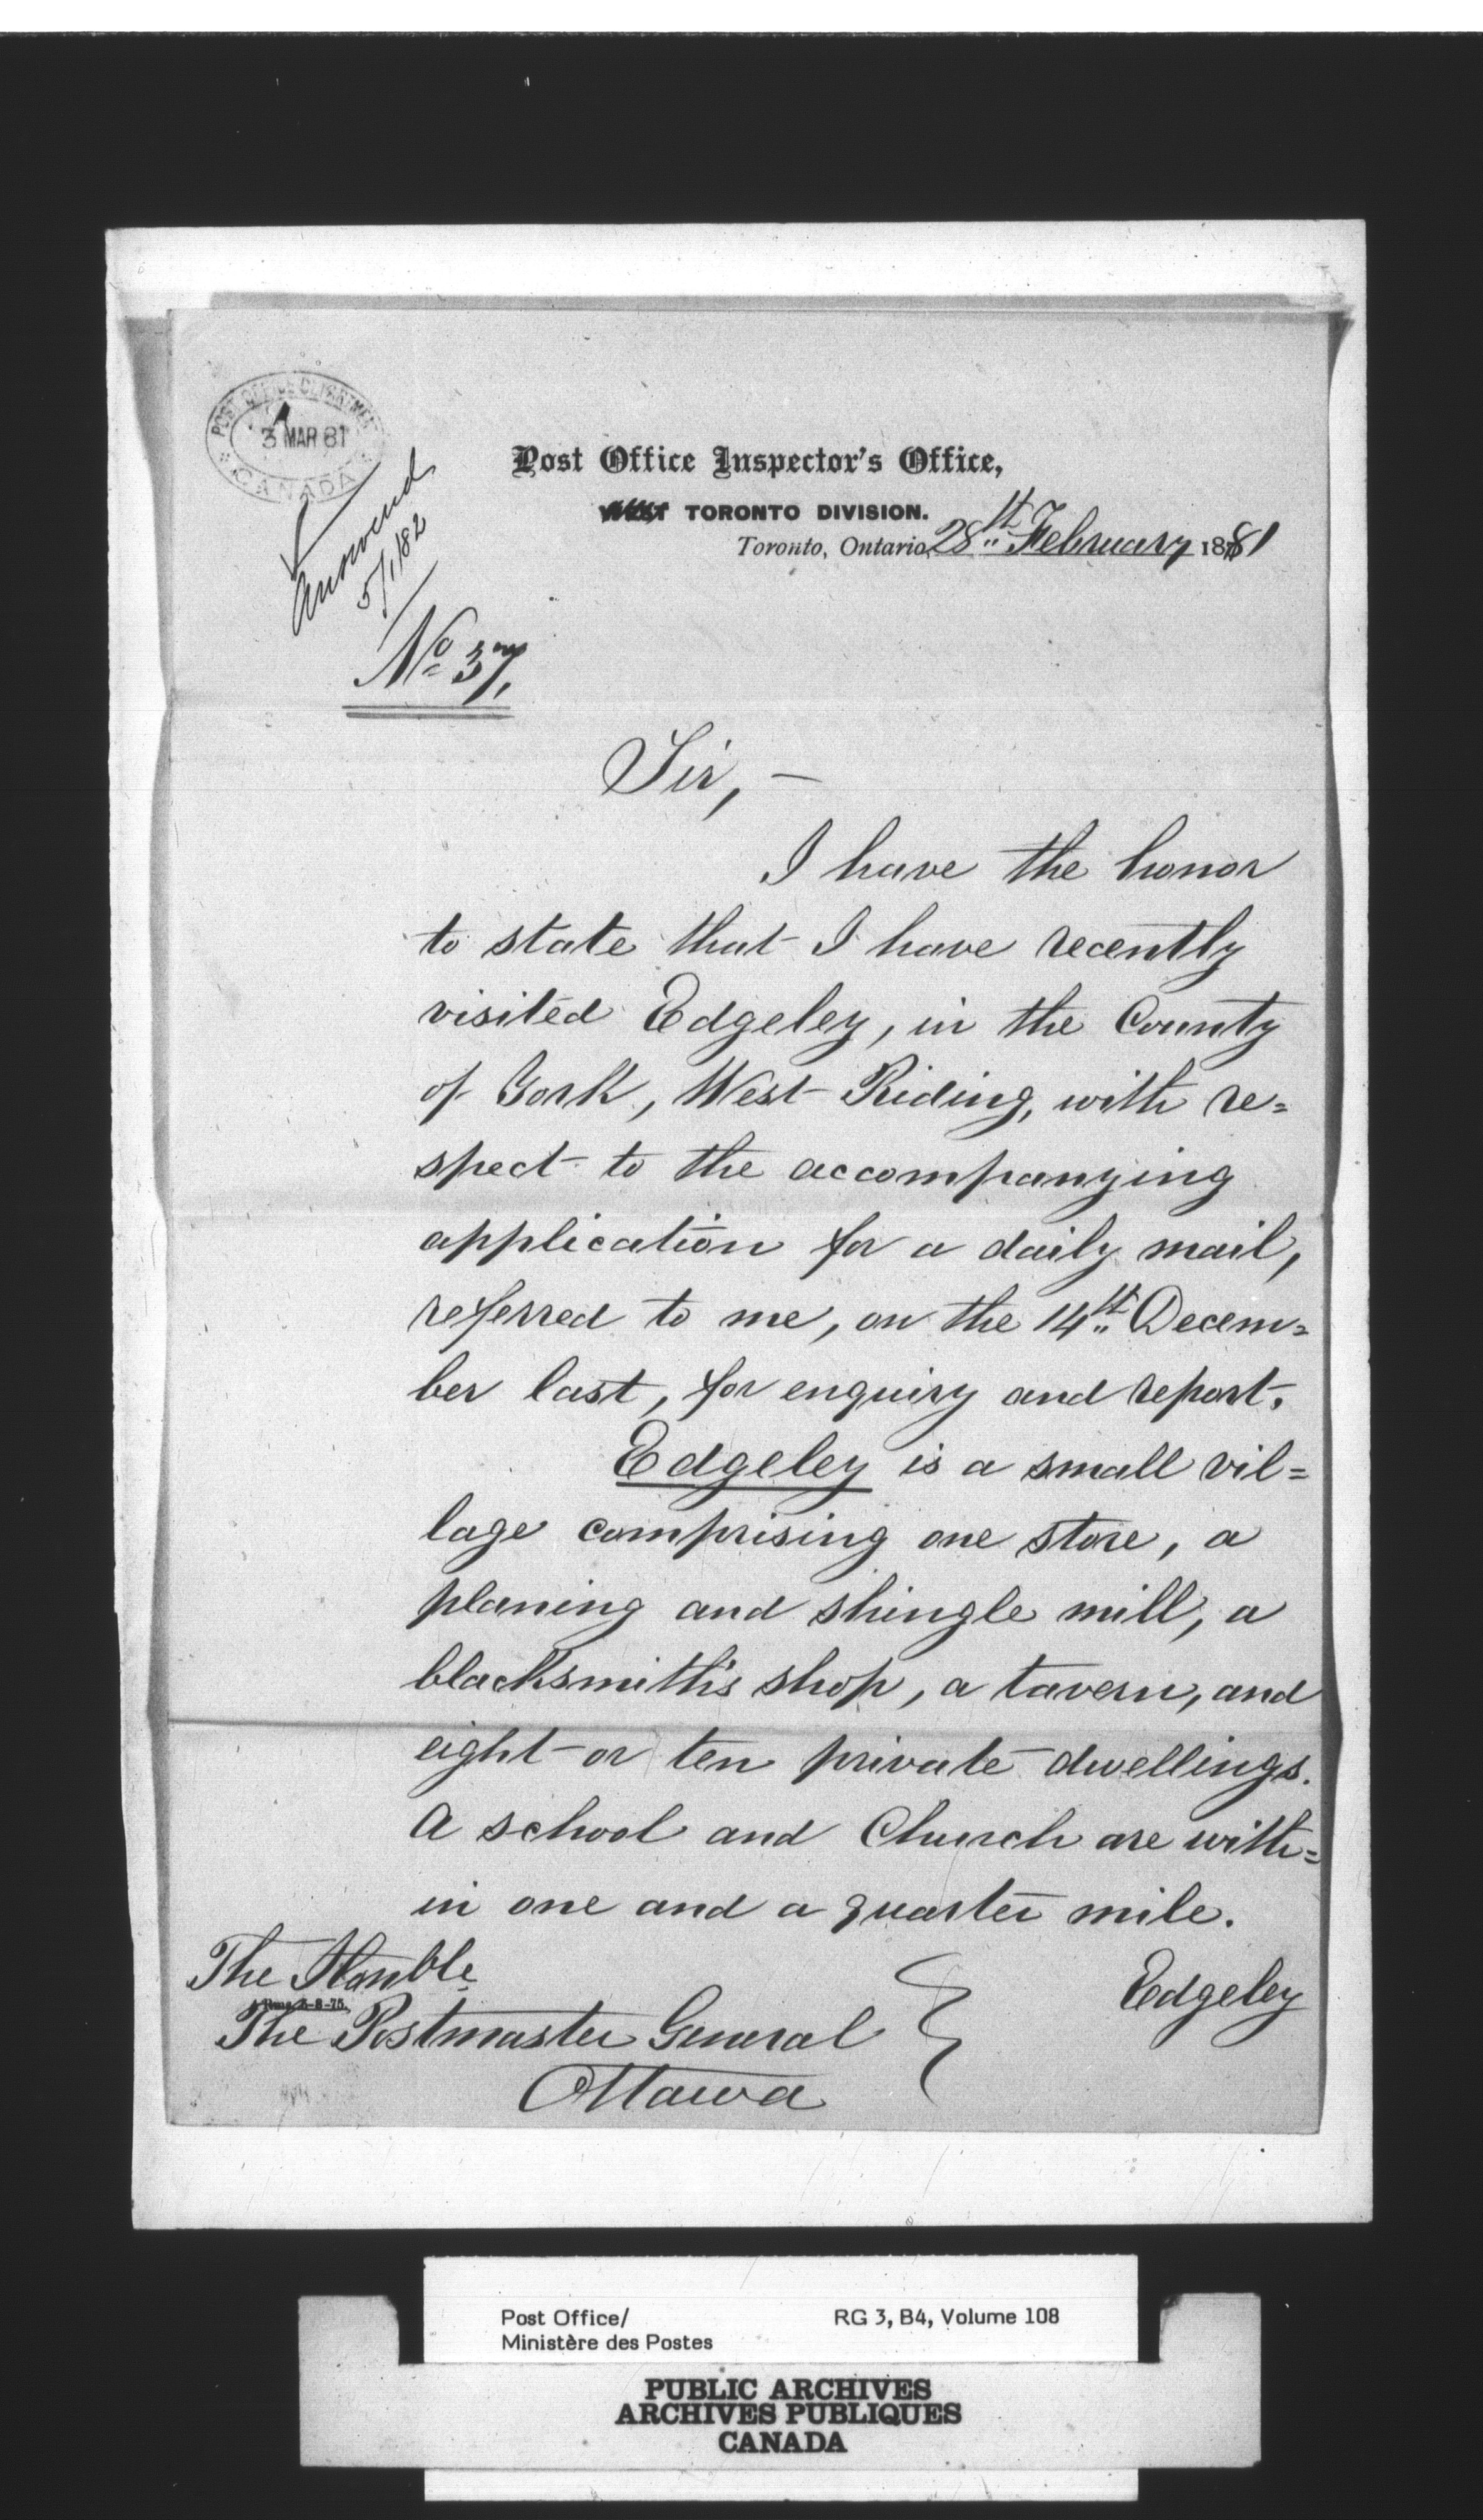 POST OFFICE DEPARTMENT
3 MAR 81
CANADA
Answered
5/1/82
No 37,
Post Office Inspector's Office,
TORONTO DIVISION.
Toronto, Ontario, 28th February 1881
Sir, —
I have the honor
to state that I have recently
visited Edgeley, in the County
of York, West Riding, with re=
spect to the accompanying
application for a daily mail,
referred to me, on the 14th Decem=
ber last, for enquiry and report.
Edgeley is a small vil=
lage comprising one store, a
planing and shingle mill, a
blacksmith's shop, a tavern, and
eight or ten private dwellings.
A school and Church are with=
in one and a quarter mile.
Edgeley
The Honble
The Postmaster General
Ottawa
Post Office/
Ministère des Postes
RG 3, B4, Volume 108
PUBLIC ARCHIVES
ARCHIVES PUBLIQUES
CANADA